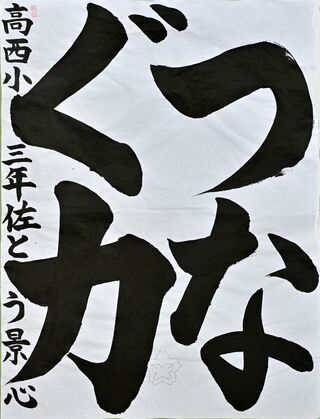 つな
ぐ力
高西小 三年佐とう景心